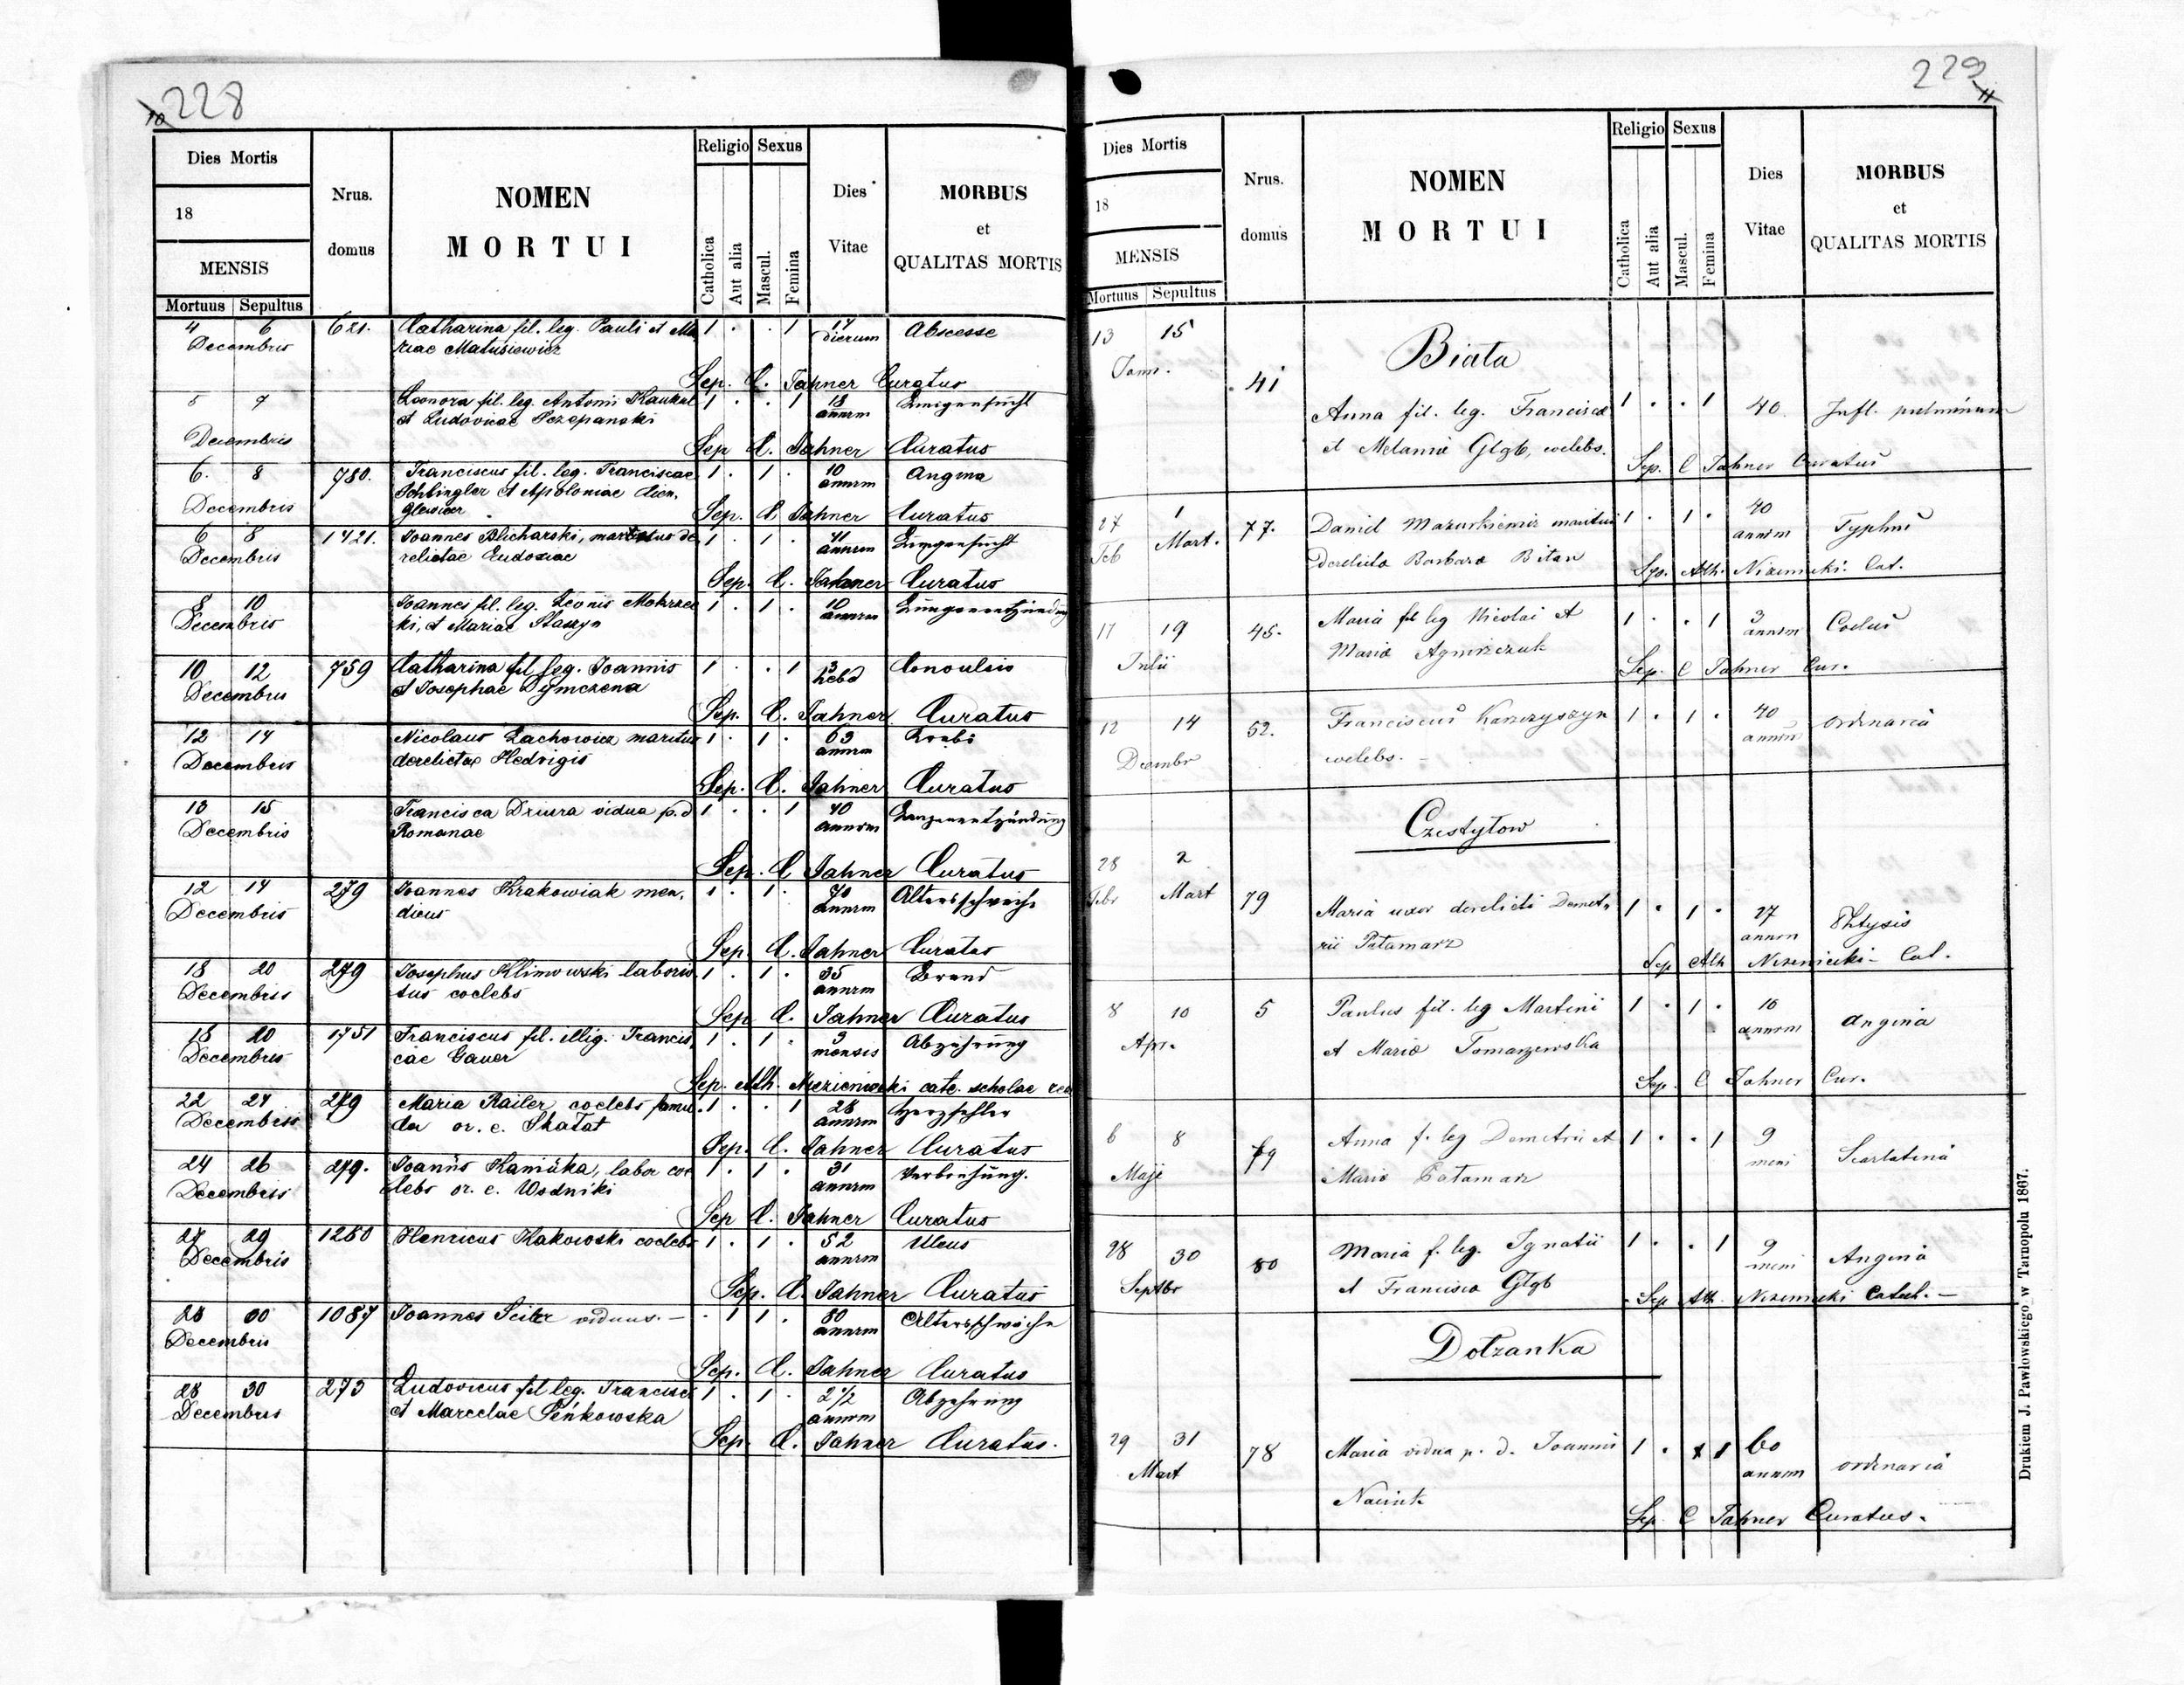 228
10
Dies Mortis
Nrus. domus
NOMEN MORTUI
Religio
Sexus
Dies Vitae
MORBUS et QUALITAS MORTIS
18
MENSIS
Mortuus Sepultus
Catholica
Aut alia
Mascul.
Femina
4 6 621. Catharina fil. leg. Pauli et Ma 1 . . 1 14 Abscesse
Decembris riae Matusiewicz dierum
Sep. C. Jahner Curatus
5 7 Leonora fil. leg. Antonii 1 . . 1 18 Lungensucht
et Ludovicae Szczepanski annrm
Decembris Sep C. Jahner Curatus
6. 8 780. Franciscus fil. leg. Franciscae 1 . 1 . 10 Angina
Schlingler et Apoloniae annrm
Decembris Sep. C. Jahner Curatus
6 8 1421. Joannes Blicharski, maritus de 1 . 1 . 41 Lungensucht
Decembris relictae Eudoxiae annrm
Sep. C. Jahner Curatus
8 10 Joannes fil. leg. Leonis 1 . 1 . 10 Lungenentzündung
Decembris ki, et Mariae Staszyn annrm
10 12 759 Catharina fil leg. Joannis 1 . . 1 3 Convulsio
Decembris et Josephae Dymczena hebd
Sep. C. Jahner Curatus
12 14 Nicolaus Lachowicz maritus 1 . 1 . 63 Krebs
Decembris derelictae Hedvigis annrm
Sep. C. Jahner Curatus
13 15 Francisca vidua p. d 1 . . 1 40 Lungenentzündung
Decembris Romanae annrm
Sep. C Jahner Curatus
12 14 279 Joannes Krakowiak men. 1 . 1 . 70 Altersschwäche
Decembris dicus annrm
Sep. C. Jahner Curatus
18 20 279 Josephus Klimowski laboris 1 . 1 . 35 Brand
Decembris tus coelebs annrm
Sep C. Jahner Curatus
18 20 1751 Franciscus fil. illig. Francis, 1 . 1 . 3 Abzehrung
Decembris cae Gauer mensis
Sep. Alh. cate. scholae
22 24 279 Maria Railer coelebs famu. 1 . . 1 28 Herzfehler
Decembris la or. e. Skałat annrm
Sep. C. Jahner Curatus
24 26 279. Joannes Kaniuka, labor coe 1 . 1 . 31 Verbrühung.
Decembris lebs or. e. Wodniki annrm
Sep C. Jahner Curatus
27 29 1260 Henricus Kakowski coelebs 1 . 1 . 52 Ulcus
Decembris annrm
Sep. C. Jahner Curatus
28 30 1087 Joannes Seiler viduus. — . 1 1 . 80 Altersschwäche
Decembris annrm
Sep. C. Jahner Curatus
28 30 273 Ludovicus fil leg. Francisci 1 . 1 . 2 1/2 Abzehrung
Decembris et Marcelae Peńkowska annrm
Sep. C. Jahner Curatus.
229
11
Dies Mortis
Nrus. domus
NOMEN MORTUI
Religio
Sexus
Dies Vitae
MORBUS et QUALITAS MORTIS
18
MENSIS
Mortuus Sepultus
Catholica
Aut alia
Mascul.
Femina
Biała
13 15 41
Janu.
Anna fil. leg. Francisca 1 . . 1 40 Infl. pulminum
et Melania Głąb, coelebs.
Sep. C Jahner Curatus
27 1 77. Daniel maritus 1 . 1 . 40 Typhus
Feb Mart. derelicta Barbara Bitan annrm
Sep. Alh. Cat.
17 19 45. Maria fil leg Nicolai et 1 . . 1 3
Julii Maria annrm
Sep. C Jahner Cur.
12 14 52. Franciscus Karczyszyn 1 . 1 . 40 ordinaria
Decembr coelebs. — annrm
Czystyłow
28 2 79 Maria uxor derelicti Demet- 1 . 1 . 27 Phtysis
Febr Mart rii Patamarz annrm
Sep Alh Cat.
8 10 5 Paulus fil. leg Martini 1 . 1 . 10 Angina
Apr. et Maria Tomaszewska annrm
Sep. C Jahner Cur.
6 8 79 Anna f. leg Demetrii et 1 . . 1 9 Scarlatina
Maje Maria Patamarz meni
28 30 80 Maria f. leg. Ignatii 1 . . 1 9 Angina
Septbr et Francisca Głąb meni
Sep Alh. Catech. —
Dołzanka
29 31 78 Maria vidua p. d. Joannis 1 . 1 60 ordinaria
Mart annrm
Sep. C Jahner Curatus.
Drukiem J. Pawłowskiego w Tarnopolu 1867.